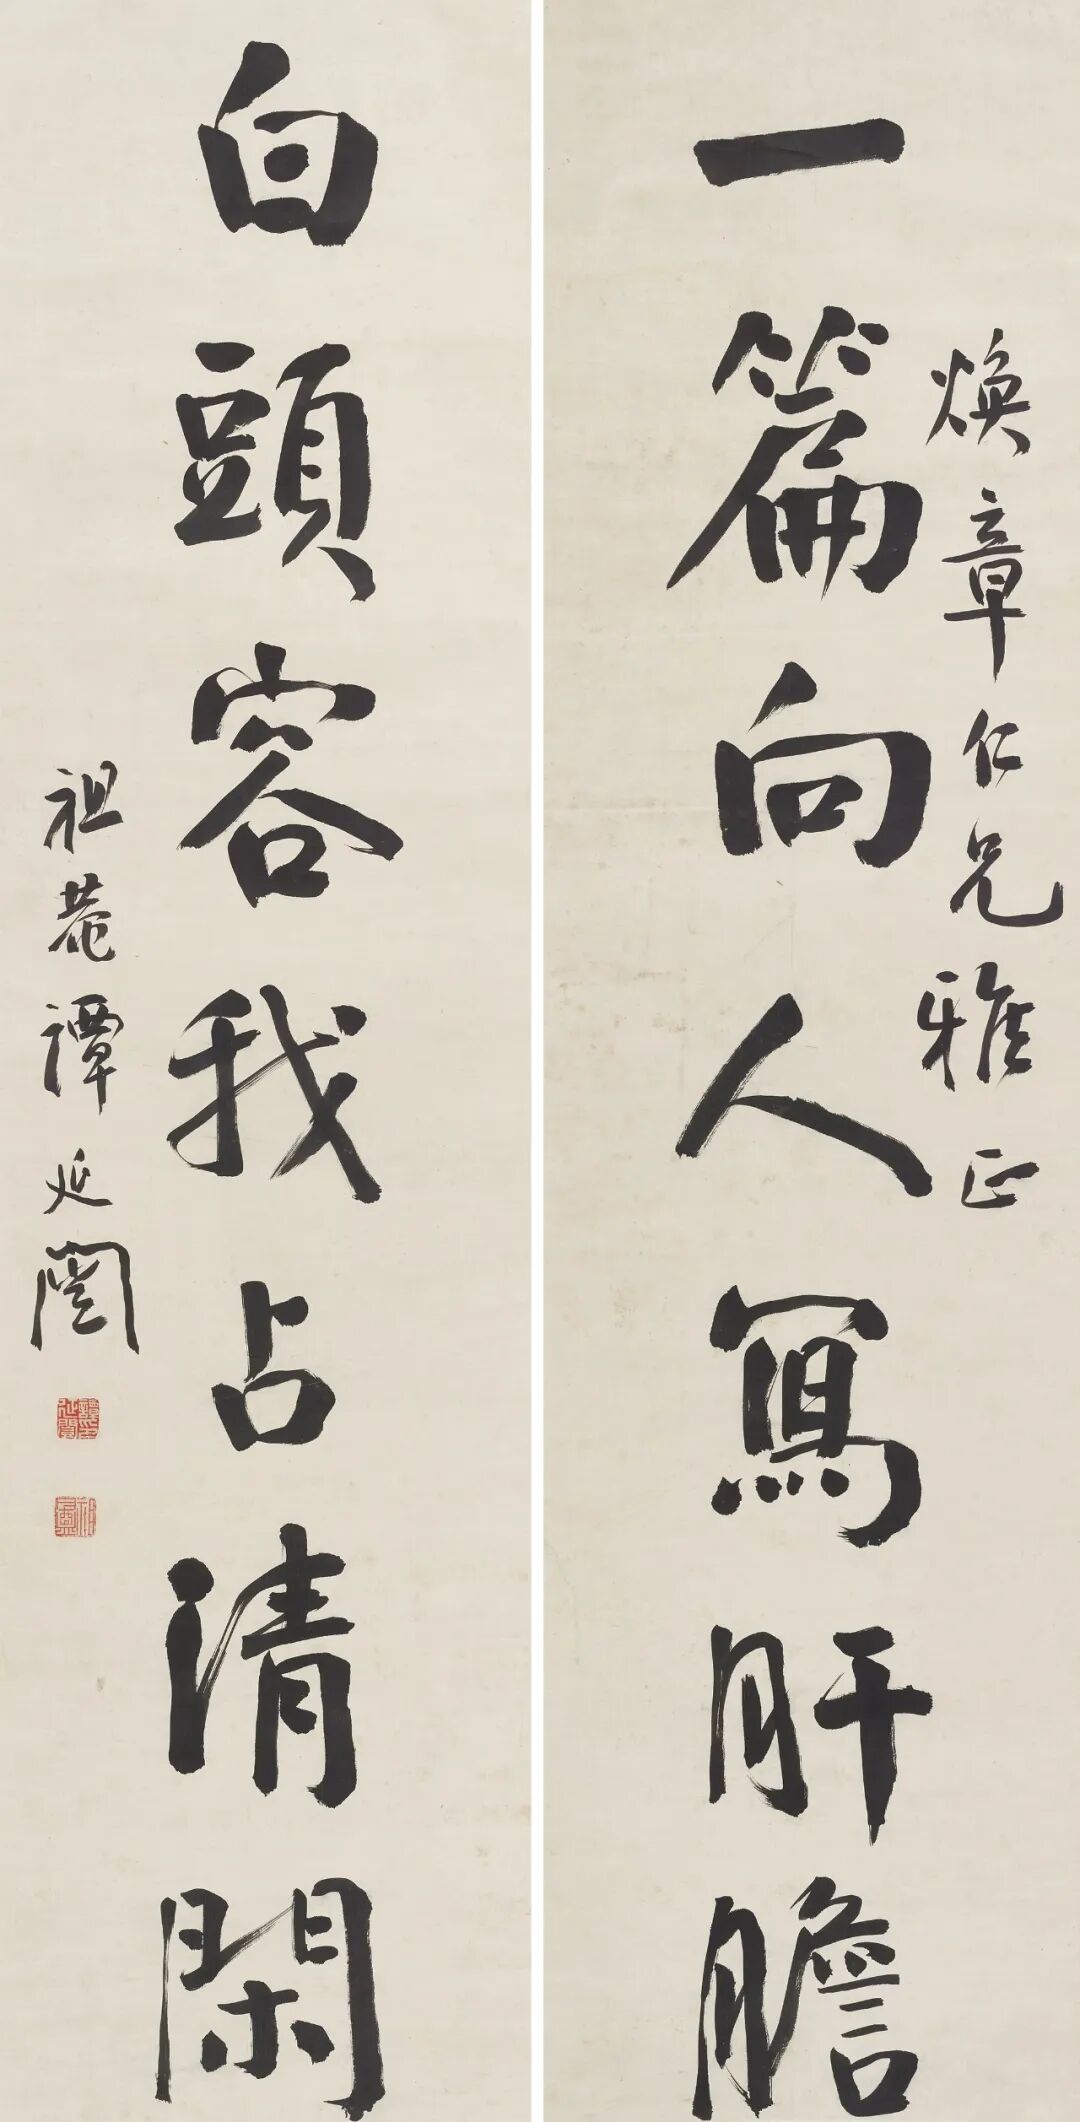 煥章仁兄雅正
一篇向人寫肝膽
白頭容我占清閑
祖菴譚延闓
譚延闓印